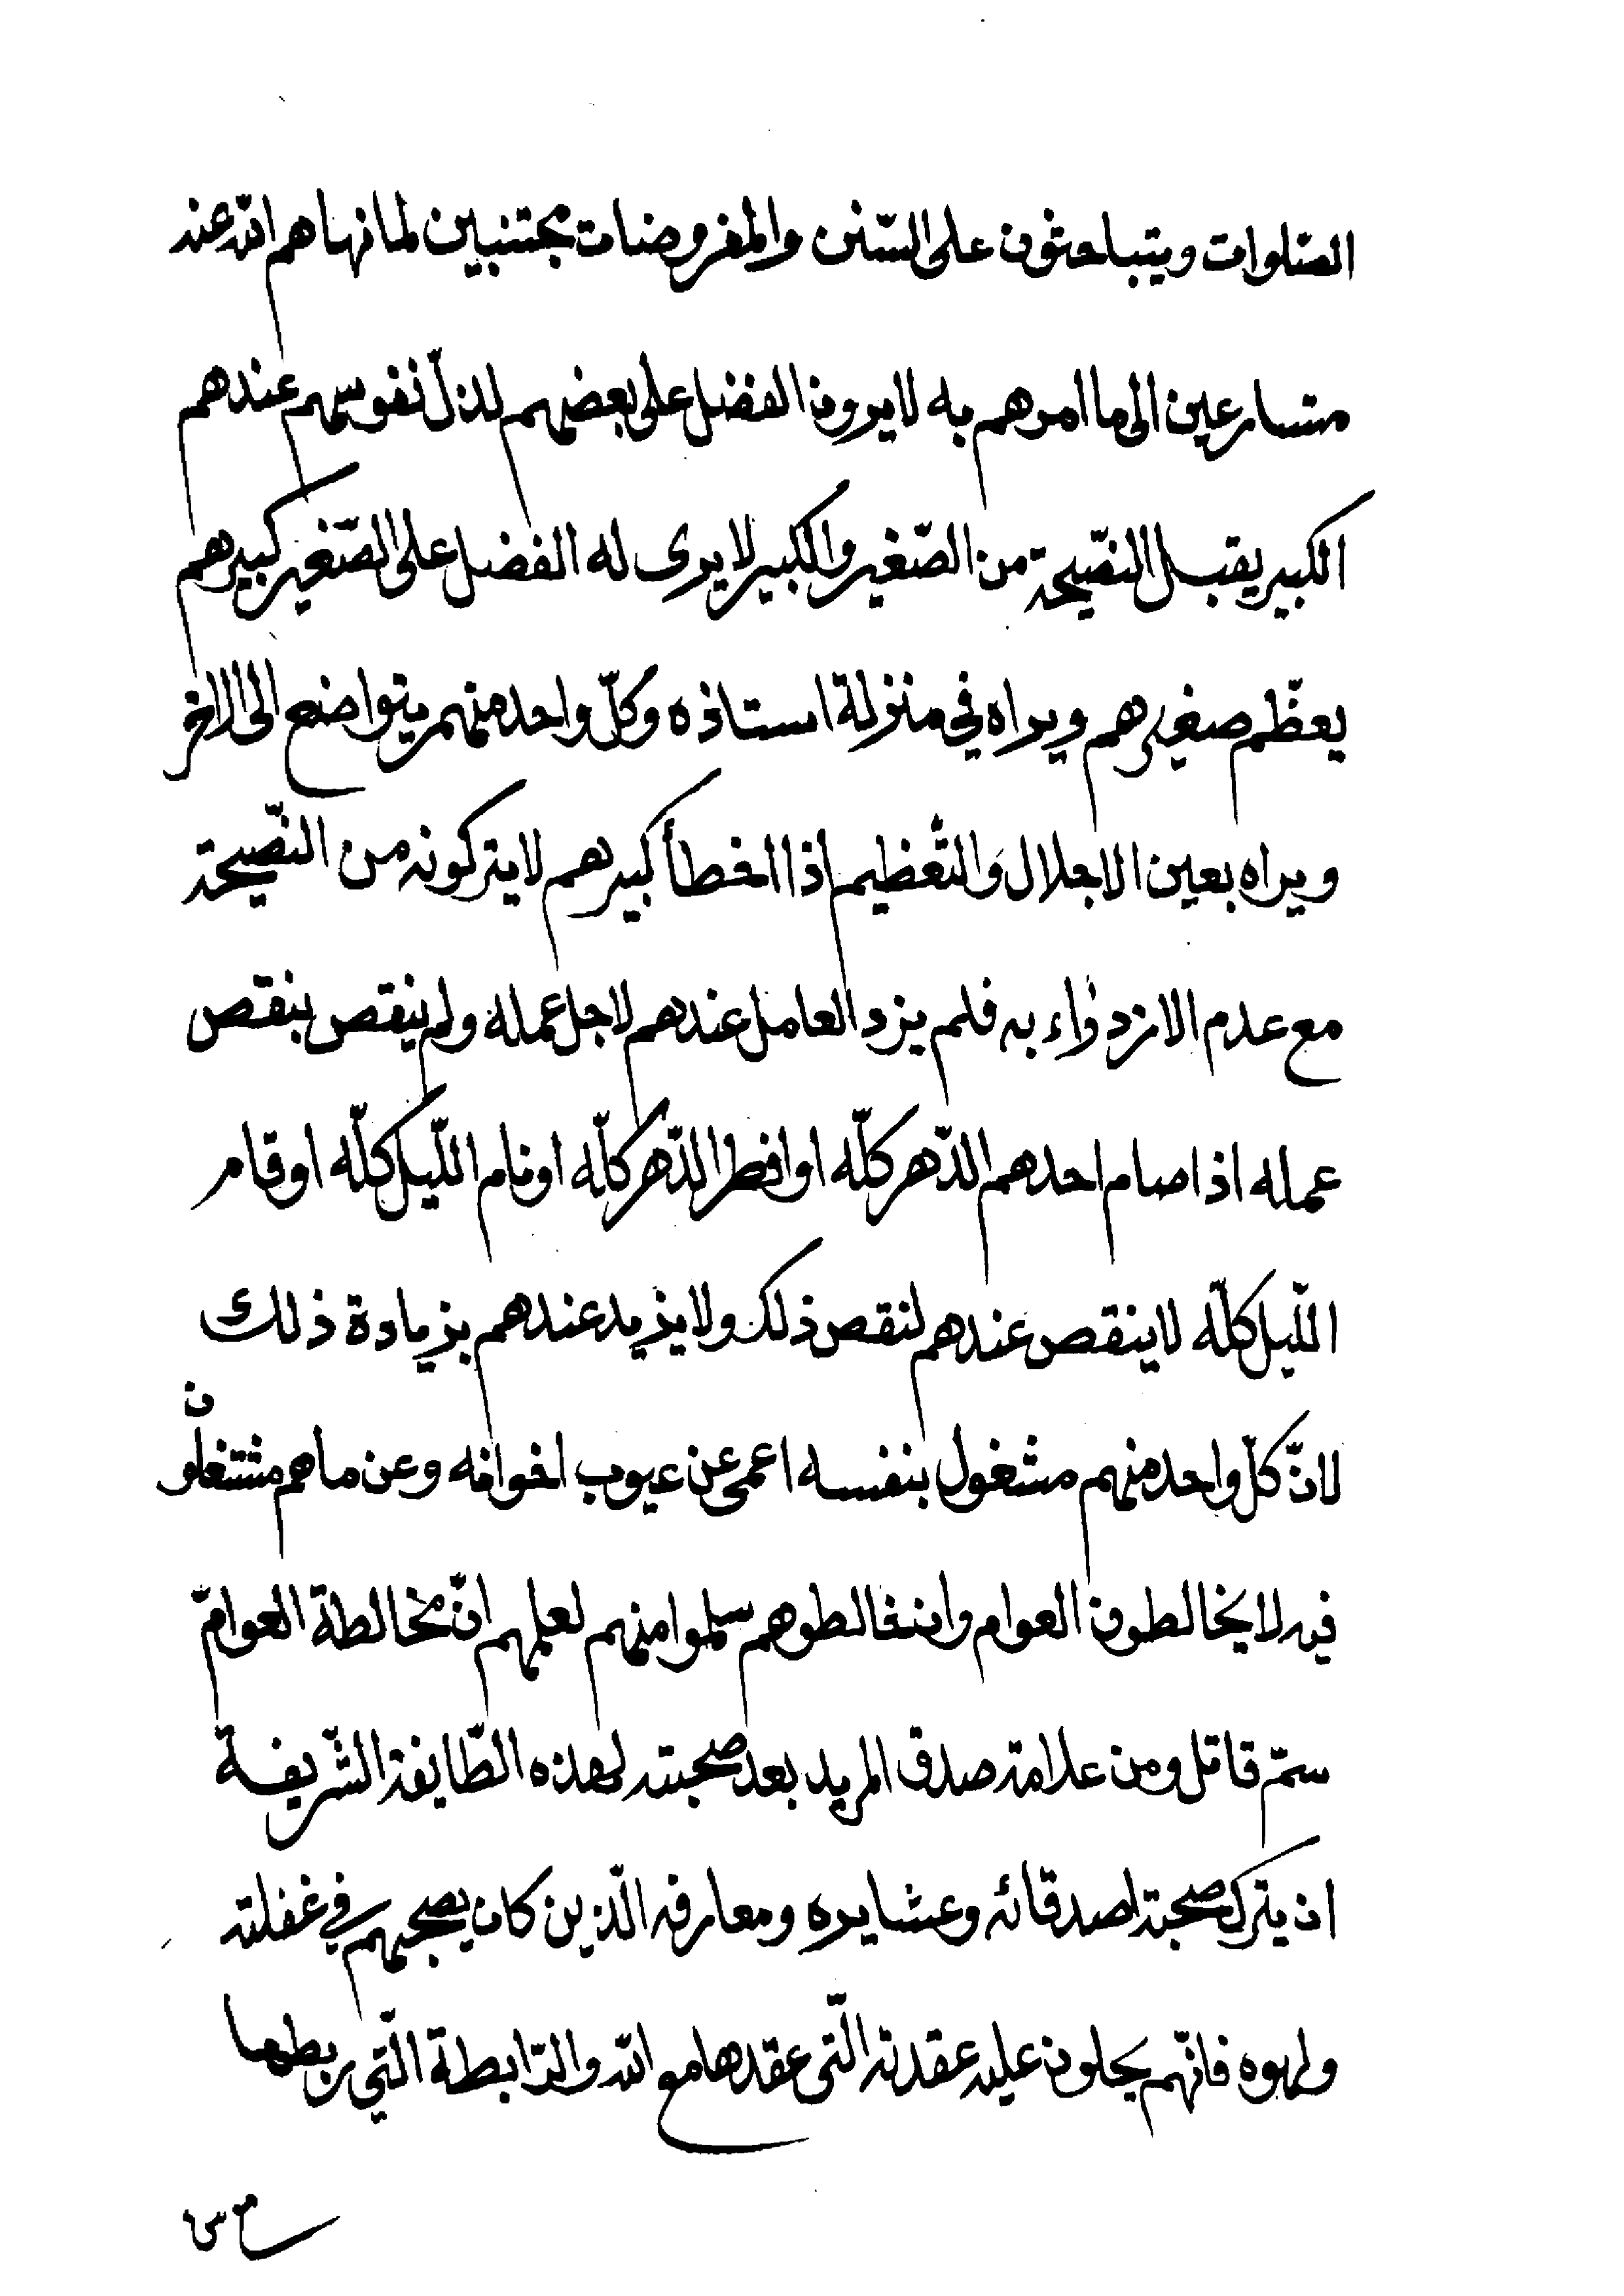 الصّلوات ويتباحثون على السّنن والمفروضات مجتنبين لما نهاهم الله عند
متسارعين الى ما امرهم به لا يرون الفضل على بعضهم لذلّ نفوسهم عندهم
الكبير يقبل النّصيحة من الصّغير والكبير لا يرى له الفضل على الصّغير كبيرهم
يعظّم صغيرهم ويراه في منزلة استاذه وكلّ واحد منهم يتواضع الى الاخر
ويراه بعين الاجلال والتّعظيم اذا اخطأ كبيرهم لا يتركونه من النّصيحة
مع عدم الازدراء به فلم يزد العامل عندهم لاجل عمله ولم ينقص بنقص
عمله اذا صام احدهم الدّهر كلّه او افطر الدّهر كلّه او نام اللّيل كلّه او قام
اللّيل كلّه لا ينقص عندهم لنقص ذلك ولا يذيد عندهم بزيادة ذلك
لانّ كلّ واحد منهم مشغول بنفسه اعمى عن عيوب اخوانه وعن ما هم مشتغلون
فيه لا يخالطون العوام وان خالطوهم سلموا منهم لعلمهم انّ مخالطة العوامّ
سمّ قاتل ومن علامة صدق المريد بعد صحبته لهذه الطّايفة الشّريفة
ان يترك صحبة اصدقائه وعشايره ومعارفه الّذين كان يصحبهم في غفلته
ولهوه فانّهم يحلون عليه عقدته الّتى عقدها مع الله والرّابطة الّتي ربطها